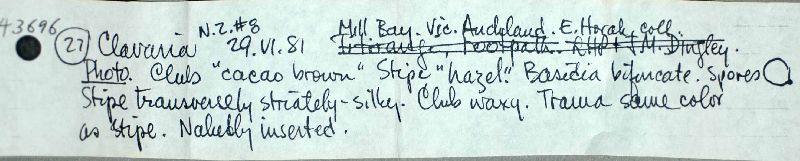 43696
N.Z.#8 Mill Bay. Vic. Auckland. E. Horak, coll.
(27) Clavaria 29.VI.81 Footpath. & J.M. Dingley.
Photo. Club "cacao brown" Stipe "hazel". Basidia bifurcate. Spores
Stipe transversely striately-silky. Club waxy. Trama same color
as stipe. Nakedly inserted.